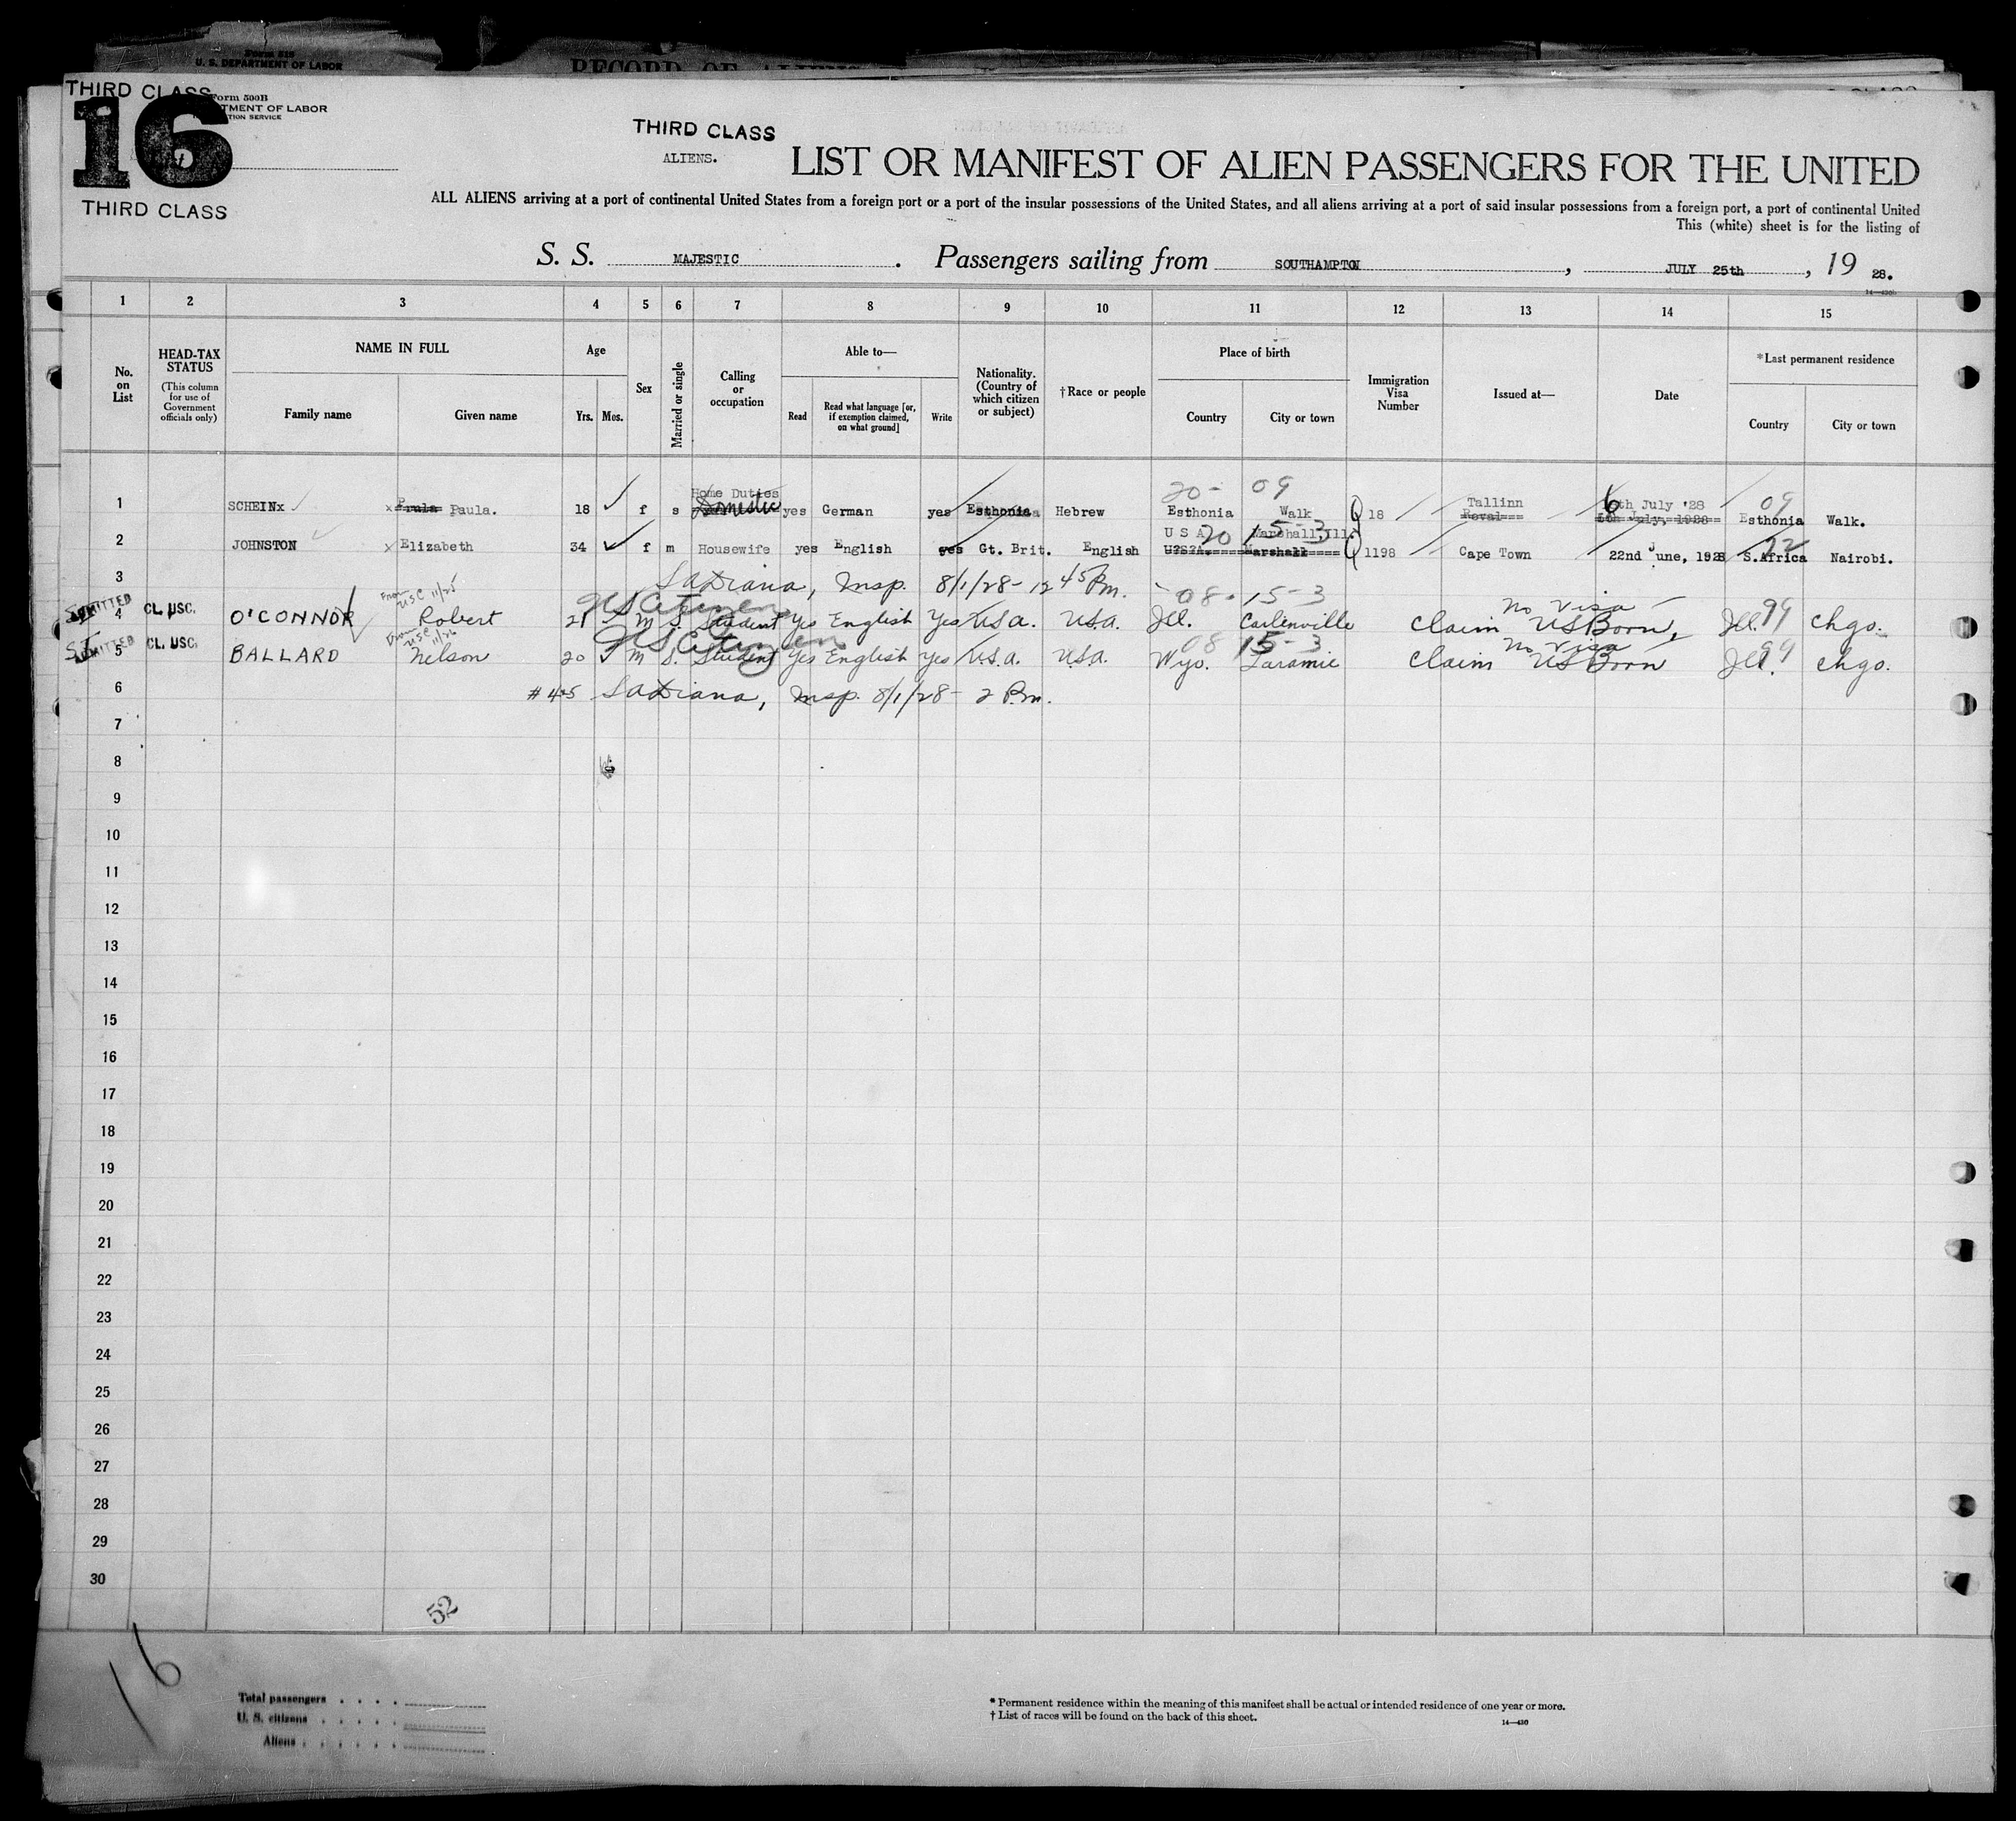 Form 519
U. S. DEPARTMENT OF LABOR
RECORD OF ALIENS
THIRD CLASS
Form 500B
TMENT OF LABOR
TION SERVICE
16
THIRD CLASS
THIRD CLASS
ALIENS.
LIST OR MANIFEST OF ALIEN PASSENGERS FOR THE UNITED
ALL ALIENS arriving at a port of continental United States from a foreign port or a port of the insular possessions of the United States, and all aliens arriving at a port of said insular possessions from a foreign port, a port of continental United
This (white) sheet is for the listing of
S. S. MAJESTIC. Passengers sailing from SOUTHAMPTON, JULY 25th, 19 28.
1 2 3 4 5 6 7 8 9 10 11 12 13 14 15
No. on List
HEAD-TAX STATUS (This column for use of Government officials only)
NAME IN FULL
Family name Given name
Age
Yrs. Mos.
Sex
Married or single
Calling or occupation
Able to—
Read Read what language [or, if exemption claimed, on what ground] Write
Nationality. (Country of which citizen or subject)
†Race or people
Place of birth
Country City or town
Immigration Visa Number
Issued at—
Date
*Last permanent residence
Country City or town
Home Duties 20- 09 Tallinn 6th July '28 09
1 SCHEINx x Paula Paula. 18 f s Domestic yes German yes Esthonia Hebrew Esthonia Walk Q 18 Reval Esthonia Walk.
U S A 20 Marshall, Ill. 15-3
2 JOHNSTON x Elizabeth 34 f m Housewife yes English yes Gt. Brit. English U?S?A. Marshall Q 1198 Cape Town 22nd June, 1928 S.Africa 22 Nairobi.
3 LaDiana, Insp. 8/1/28 - 12 45 Pm.
USC 11/25 US Citizen 08 - 15-3 no visa
ADMITTED 4 CL. USC. O'CONNOR Robert 21 M S Student Yes English Yes U.S.a. U.S.a. Ill. Carlinville Claim US Born, Ill. 99 Chgo.
USC US Citizen 08 15-3 no visa
ADMITTED 5 CL. USC. BALLARD Nelson 20 M S. Student Yes English Yes U.S.a. U.S.a. Wyo. Laramie Claim US Born Ill. 99 Chgo.
6 #4+5 LaDiana, Insp. 8/1/28 - 2 P.m.
7
8
9
10
11
12
13
14
15
16
17
18
19
20
21
22
23
24
25
26
27
28
29
30
52
16
Total passengers
U. S. citizens
Aliens
* Permanent residence within the meaning of this manifest shall be actual or intended residence of one year or more.
† List of races will be found on the back of this sheet.
14—430